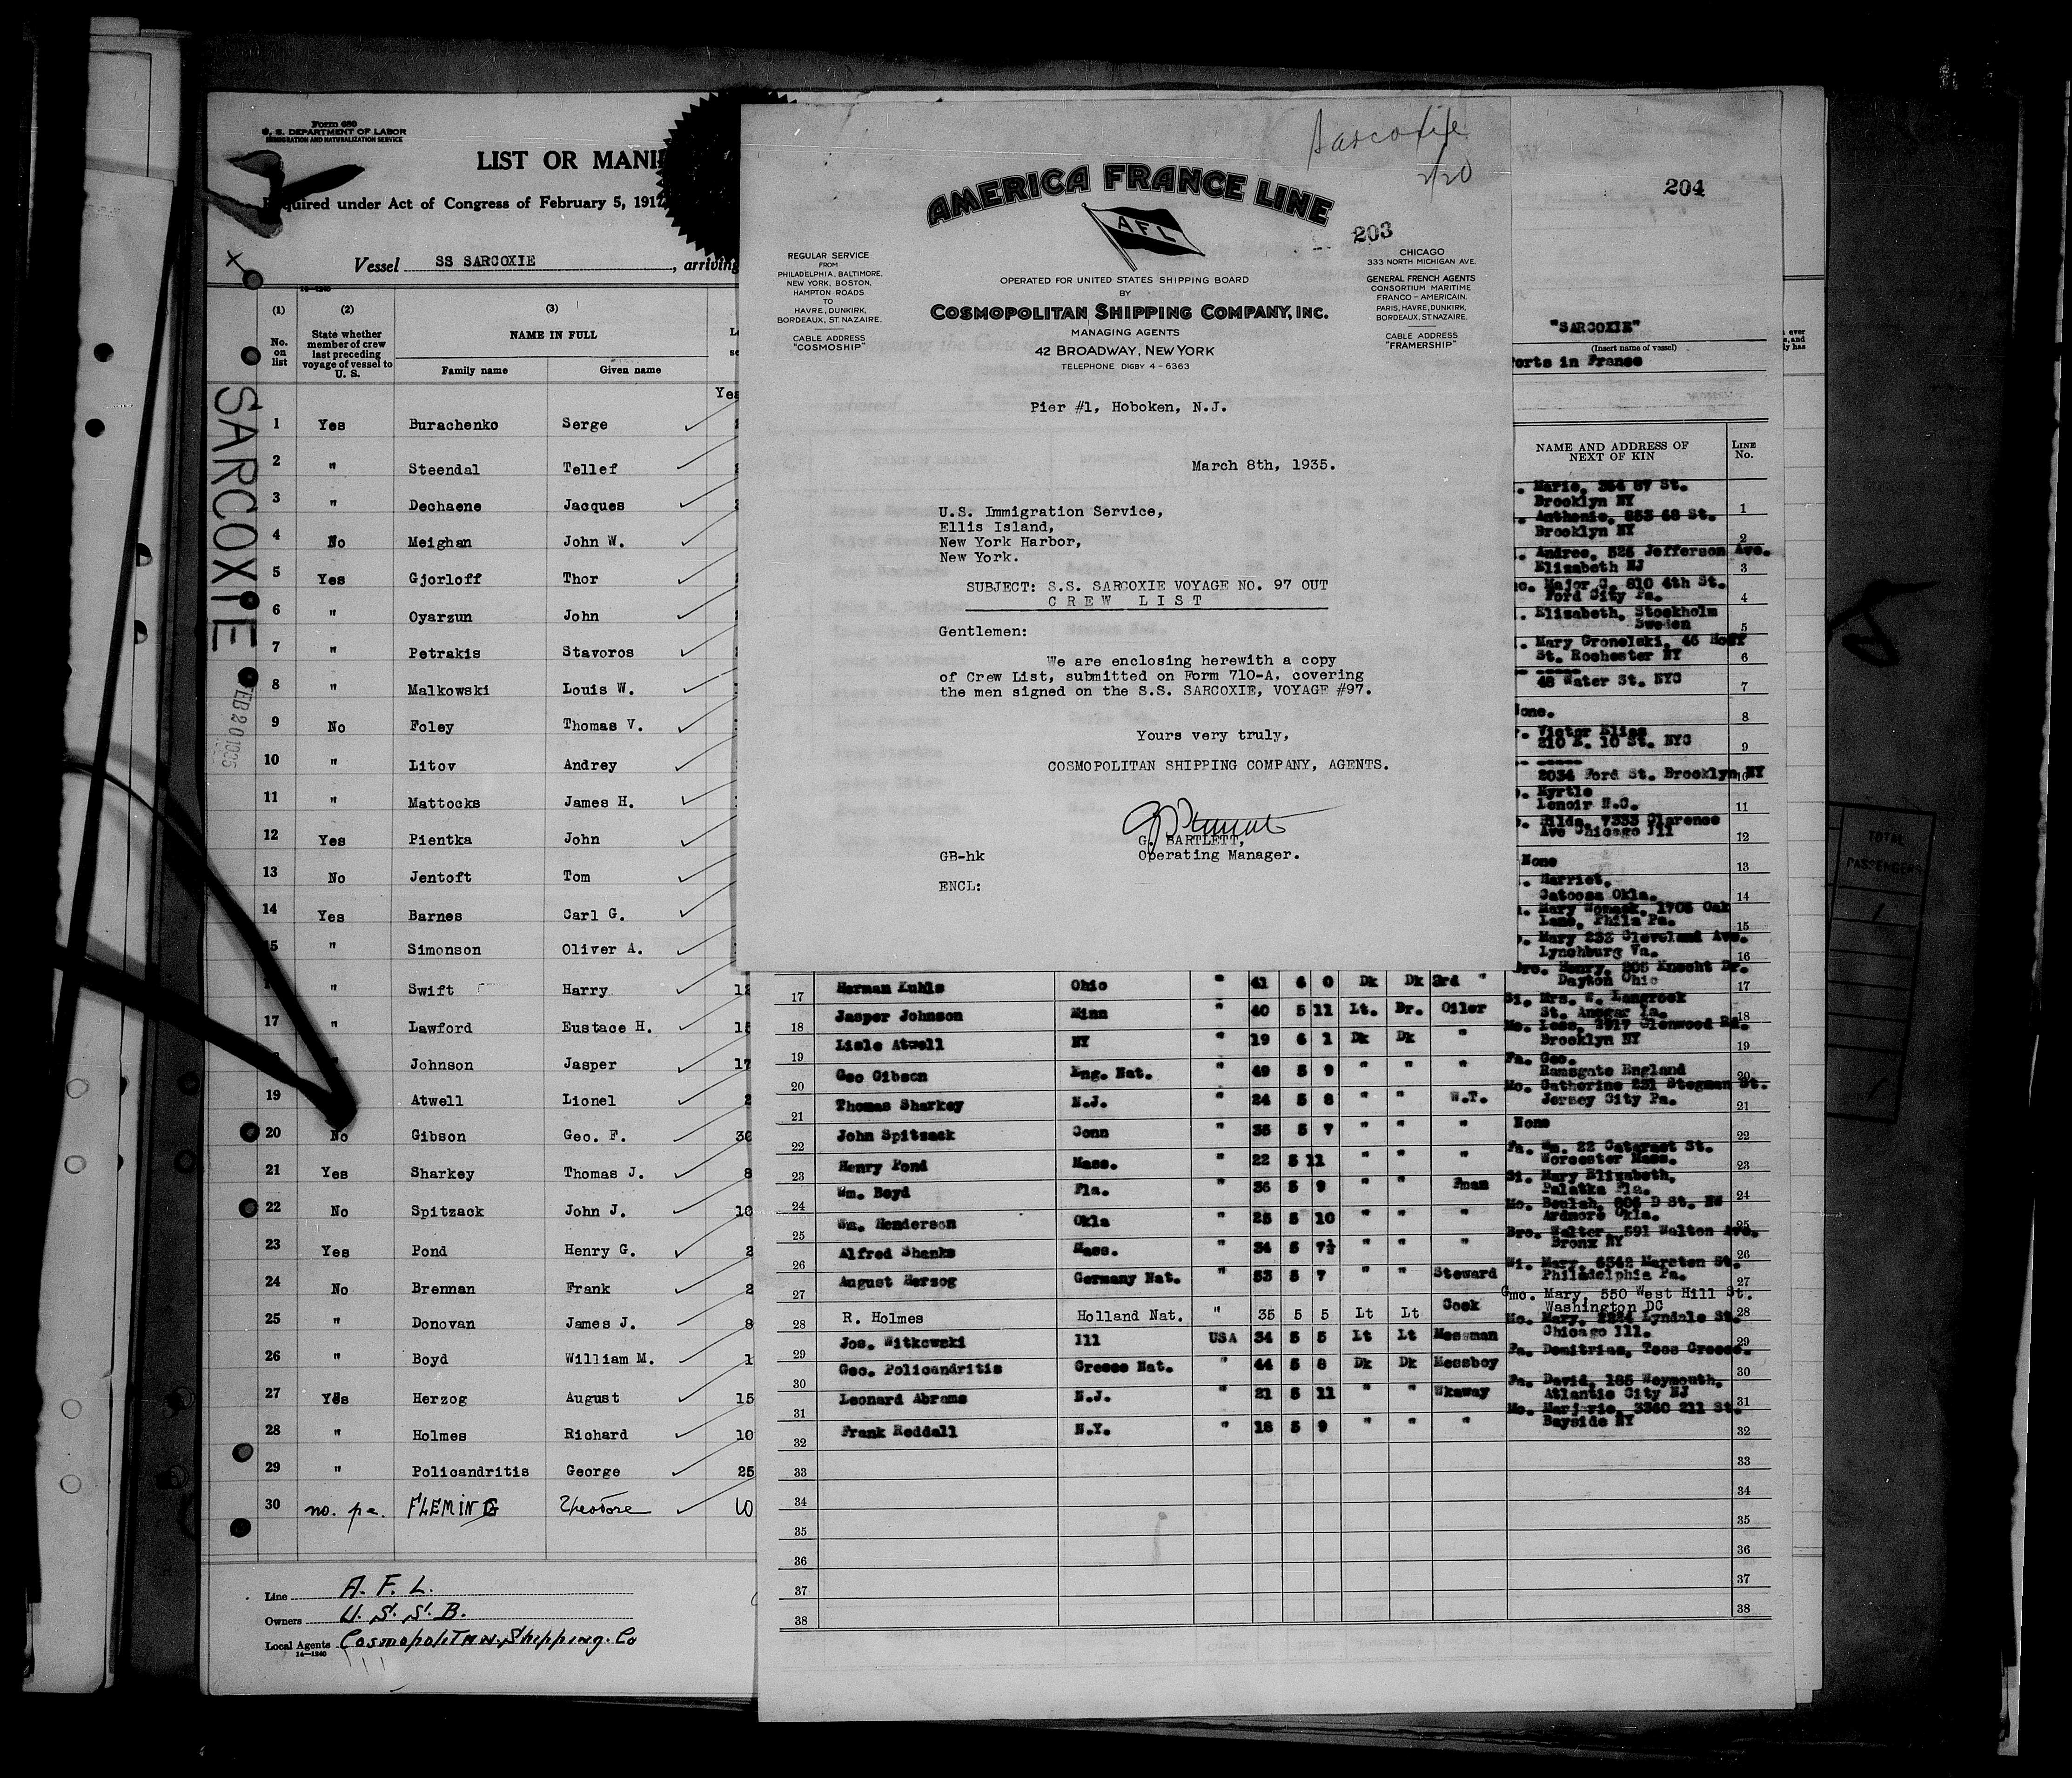 Form 680
U. S. DEPARTMENT OF LABOR
IMMIGRATION AND NATURALIZATION SERVICE
LIST OR MANI
Required under Act of Congress of February 5, 1917
Vessel SS SARCOXIE , arriving
(1) (2) (3)
No. on list
State whether member of crew last preceding voyage of vessel to U. S.
NAME IN FULL
Family name Given name
Yes
1 Yes Burachenko Serge
2 " Steendal Tellef
3 " Dechaene Jacques
4 No Meighan John W.
5 Yes Gjorloff Thor
6 " Oyarzun John
7 " Petrakis Stavoros
8 " Malkowski Louis W.
9 No Foley Thomas V.
10 " Litov Andrey
11 " Mattocks James H.
12 Yes Pientka John
13 No Jentoft Tom
14 Yes Barnes Carl G.
15 " Simonson Oliver A.
" Swift Harry 12
17 " Lawford Eustace H. 15
" Johnson Jasper 17
19 Atwell Lionel 2
20 No Gibson Geo. F. 30
21 Yes Sharkey Thomas J. 8
22 No Spitzack John J. 10
23 Yes Pond Henry G. 2
24 No Brennan Frank 2
25 " Donovan James J. 8
26 " Boyd William M. 1
27 Yes Herzog August 15
28 " Holmes Richard 10
29 " Policandritis George 25
30 no. pa. FLEMING Theodore
Line A. F. L.
Owners U. S. S. B.
Local Agents Cosmopolitan Shipping. Co
14—1240
SARCOXIE
FEB 20 1935
Sarcoxie
2/20
AMERICA FRANCE LINE
AFL
203
REGULAR SERVICE
FROM
PHILADELPHIA, BALTIMORE,
NEW YORK, BOSTON,
HAMPTON ROADS
TO
HAVRE, DUNKIRK,
BORDEAUX, ST. NAZAIRE.
CABLE ADDRESS
"COSMOSHIP"
OPERATED FOR UNITED STATES SHIPPING BOARD
BY
COSMOPOLITAN SHIPPING COMPANY, INC.
MANAGING AGENTS
42 BROADWAY, NEW YORK
TELEPHONE DIGBY 4-6363
CHICAGO
333 NORTH MICHIGAN AVE.
GENERAL FRENCH AGENTS
CONSORTIUM MARITIME
FRANCO-AMERICAIN.
PARIS, HAVRE, DUNKIRK,
BORDEAUX, ST. NAZAIRE.
CABLE ADDRESS
"FRAMERSHIP"
Pier #1, Hoboken, N.J.
March 8th, 1935.
U.S. Immigration Service,
Ellis Island,
New York Harbor,
New York.
SUBJECT: S.S. SARCOXIE VOYAGE NO. 97 OUT
C R E W L I S T
Gentlemen:
We are enclosing herewith a copy
of Crew List, submitted on Form 710-A, covering
the men signed on the S.S. SARCOXIE, VOYAGE #97.
Yours very truly,
COSMOPOLITAN SHIPPING COMPANY, AGENTS.
G. BARTLETT,
GB-hk Operating Manager.
ENCL:
204
"SARCOXIE"
(Insert name of vessel)
Ports in France
NAME AND ADDRESS OF NEXT OF KIN
LINE No.
. Marie, 354 87 St.
Brooklyn NY 1
. Anthonie, 853 68 St.
Brooklyn NY 2
. Andree, 525 Jefferson Ave.
Elizabeth NJ 3
Major C. 810 4th St.
Ford City Pa. 4
. Elizabeth, Stockholm
Sweden 5
. Mary Gronelski, 46 Hoff
St. Rochester NY 6
48 Water St. NYC 7
None. 8
. Victor Elias
210 E. 10 St. NYC 9
2034 Ford St. Brooklyn NY 10
. Myrtle
Lenoir N.C. 11
. Hilda, 7333 Clarence
Ave Chicago Ill 12
None 13
. Harriet,
Catoosa Okla. 14
. Mary Womack, 1705 Oak
Lane, Phila Pa. 15
. Mary 232 Cleveland Ave.
Lynchburg Va. 16
Bro. Henry, 205 Knecht Dr.
Dayton Ohio 17
17 Herman Kuhls Ohio " 41 6 0 Dk Dk 3rd "
18 Jasper Johnson Minn " 40 5 11 Lt. Br. Oiler Si. Mrs. W. Langrock
St. Ansgar Ia. 18
19 Lisle Atwell NY " 19 6 1 Dk Dk " Mo. Less, 2917 Glenwood Rd.
Brooklyn NY 19
20 Geo Gibson Eng. Nat. " 49 5 9 " " " Fa. Geo.
Ramsgate England 20
21 Thomas Sharkey N.J. " 24 5 8 " " W.T. Mo. Catherine 231 Stegman St.
Jersey City Pa. 21
22 John Spitzack Conn " 35 5 7 " " " None 22
23 Henry Pond Mass. " 22 5 11 " " " Fa. Wm. 22 Cataract St.
Worcester Mass. 23
24 Wm. Boyd Fla. " 36 5 9 " " Fman Si. Mary Elizabeth,
Palatka Fla. 24
25 Wm. Henderson Okla " 25 5 10 " " " Mo. Beulah, 806 D St. NW
Ardmore Okla. 25
26 Alfred Shanks Mass. " 34 5 7½ " " " Bro. Walter, 591 Walton Ave.
Bronx NY 26
27 August Herzog Germany Nat. " 53 5 7 " " Steward Wi. Mary, 6342 Marsten St.
Philadelphia Pa. 27
28 R. Holmes Holland Nat. " 35 5 5 Lt Lt Cook Gmo. Mary, 550 West Hill St.
Washington DC 28
29 Jos. Witkowski Ill USA 34 5 5 Lt Lt Messman Mo. Mary, 2224 Lyndale St.
Chicago Ill. 29
30 Geo. Policandritis Greece Nat. " 44 5 8 Dk Dk Messboy Fa. Demitrias, Tess Greece. 30
31 Leonard Abrams N.J. " 21 5 11 " " Wkaway Fa. David, 185 Weymouth,
Atlantic City NJ 31
32 Frank Reddall N.Y. " 18 5 9 " " " Mo. Marjorie, 3360 211 St.
Bayside NY 32
33 33
34 34
35 35
36 36
37 37
38 38
TOTAL
PASSENGERS